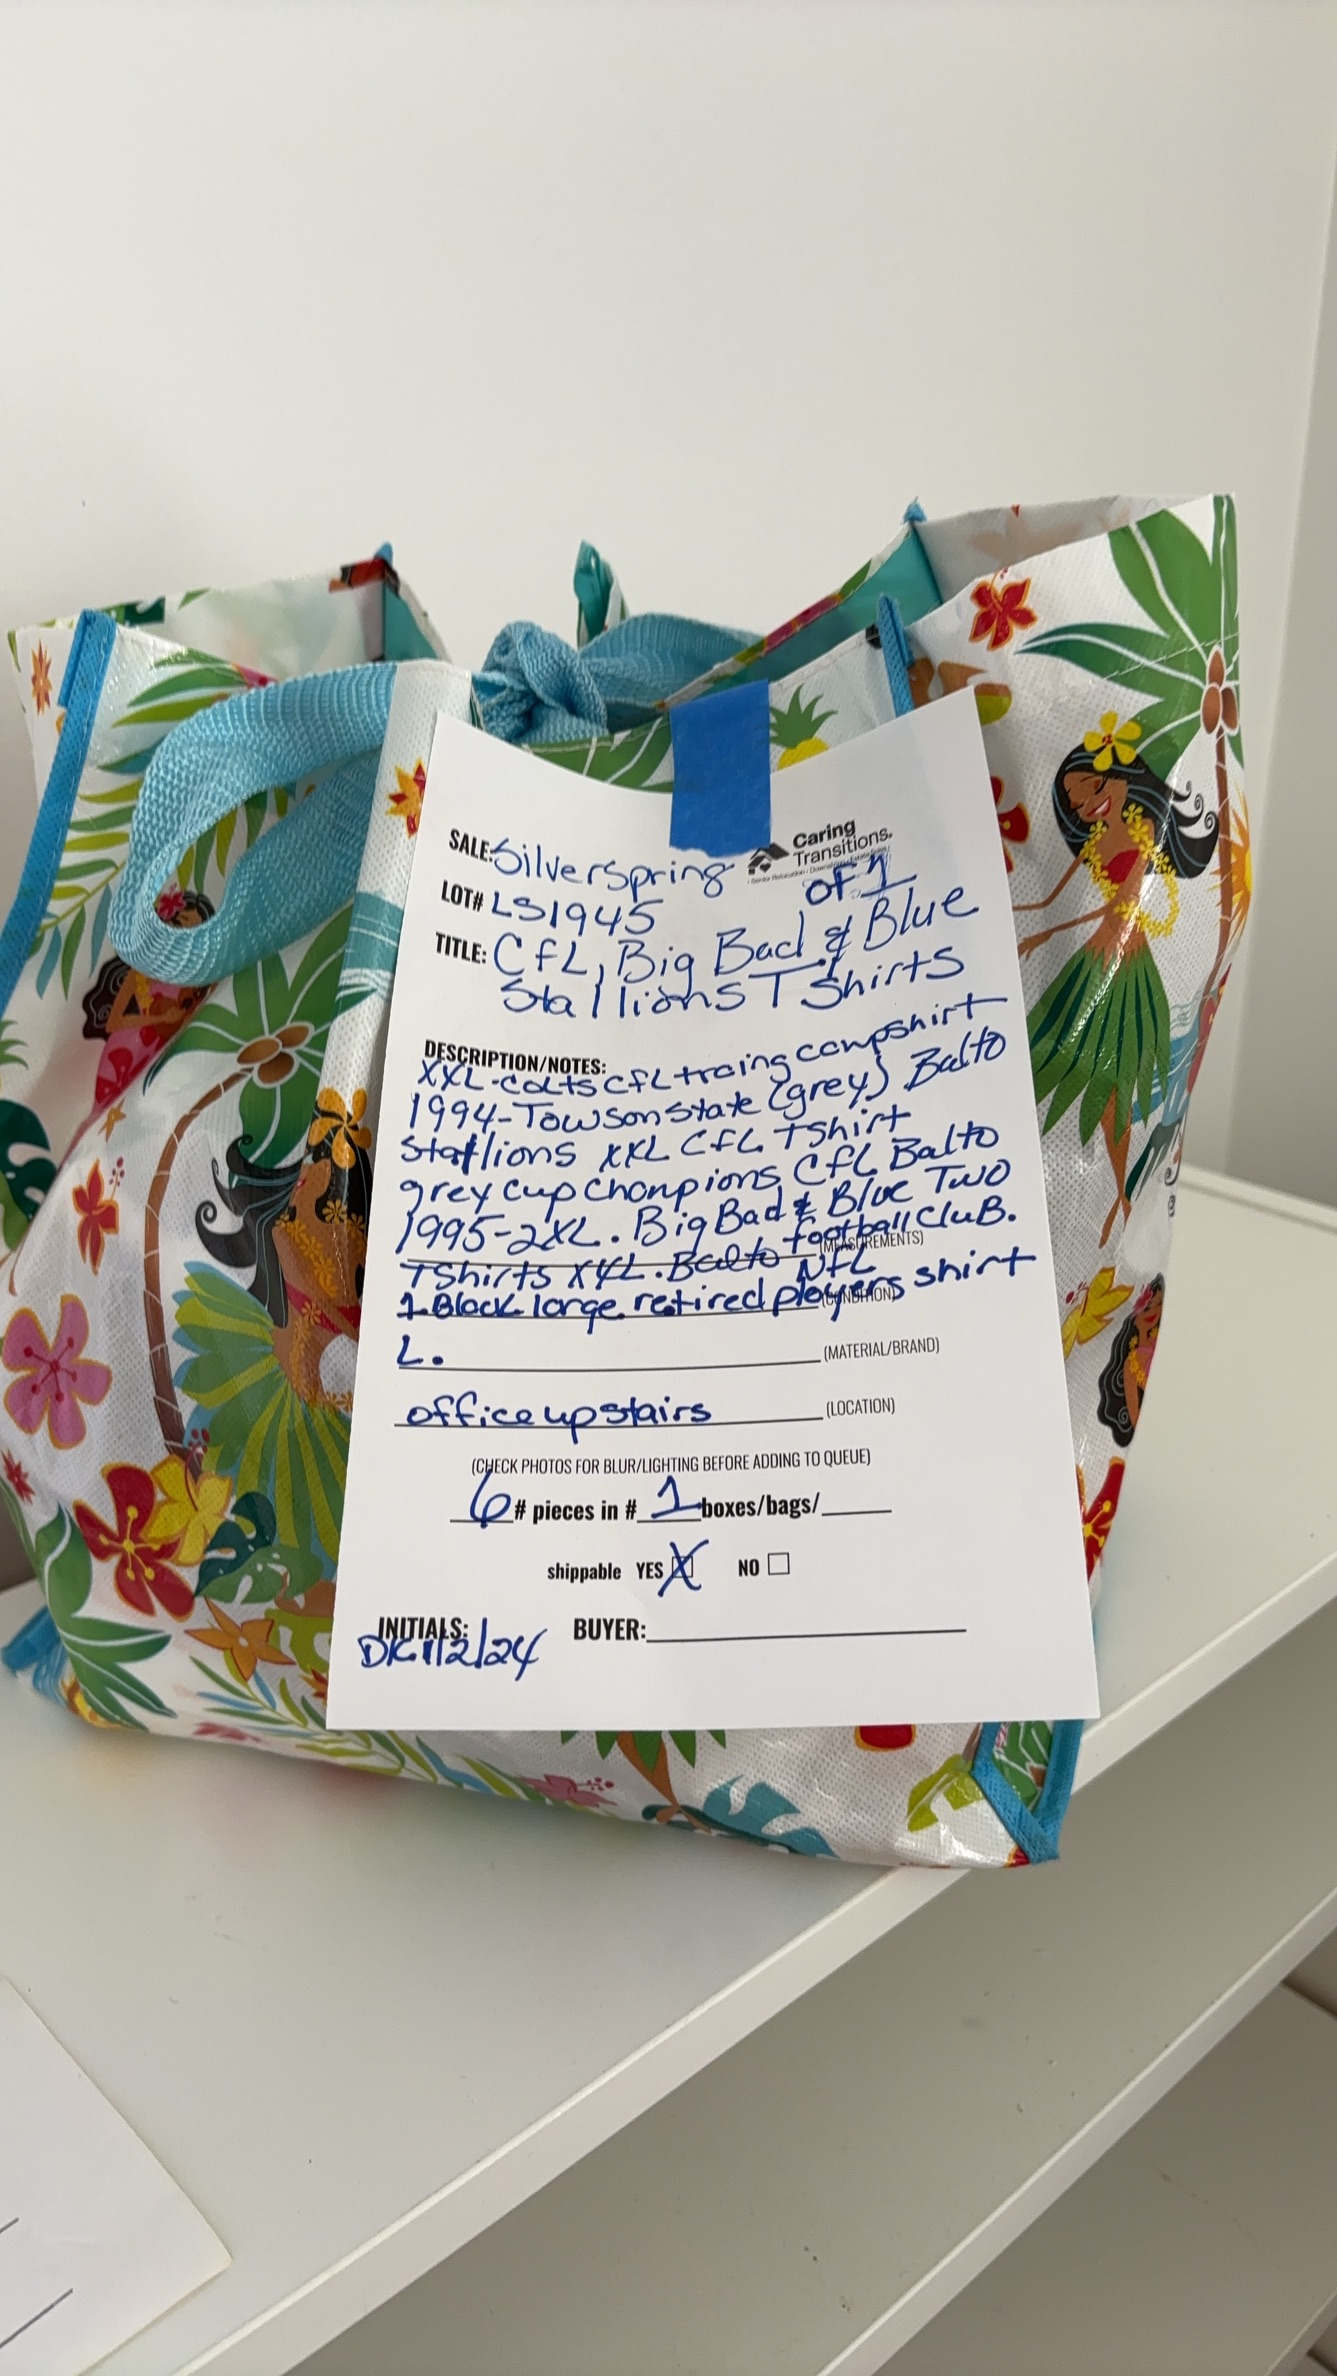 SALE: Silverspring
Caring
Transitions.
LOT# LS1945 OF 1
TITLE: CfL, Big Bad & Blue
Stallions T Shirts
DESCRIPTION/NOTES:
XXL-colts CfL traing campshirt
1994-Towson State (grey) Balto
Stallions XXL CfL TShirt
grey cup chanpions CfL Balto
1995-2XL. Big Bad & Blue Two
TShirts XXL. Balto football CluB.
(MEASUREMENTS)
NfL
1 Black large retired players shirt
(CONDITION)
L. (MATERIAL/BRAND)
office upstairs (LOCATION)
(CHECK PHOTOS FOR BLUR/LIGHTING BEFORE ADDING TO QUEUE)
6 # pieces in # 1 boxes/bags/
shippable YES X NO
INITIALS: BUYER:
DK 1/2/24